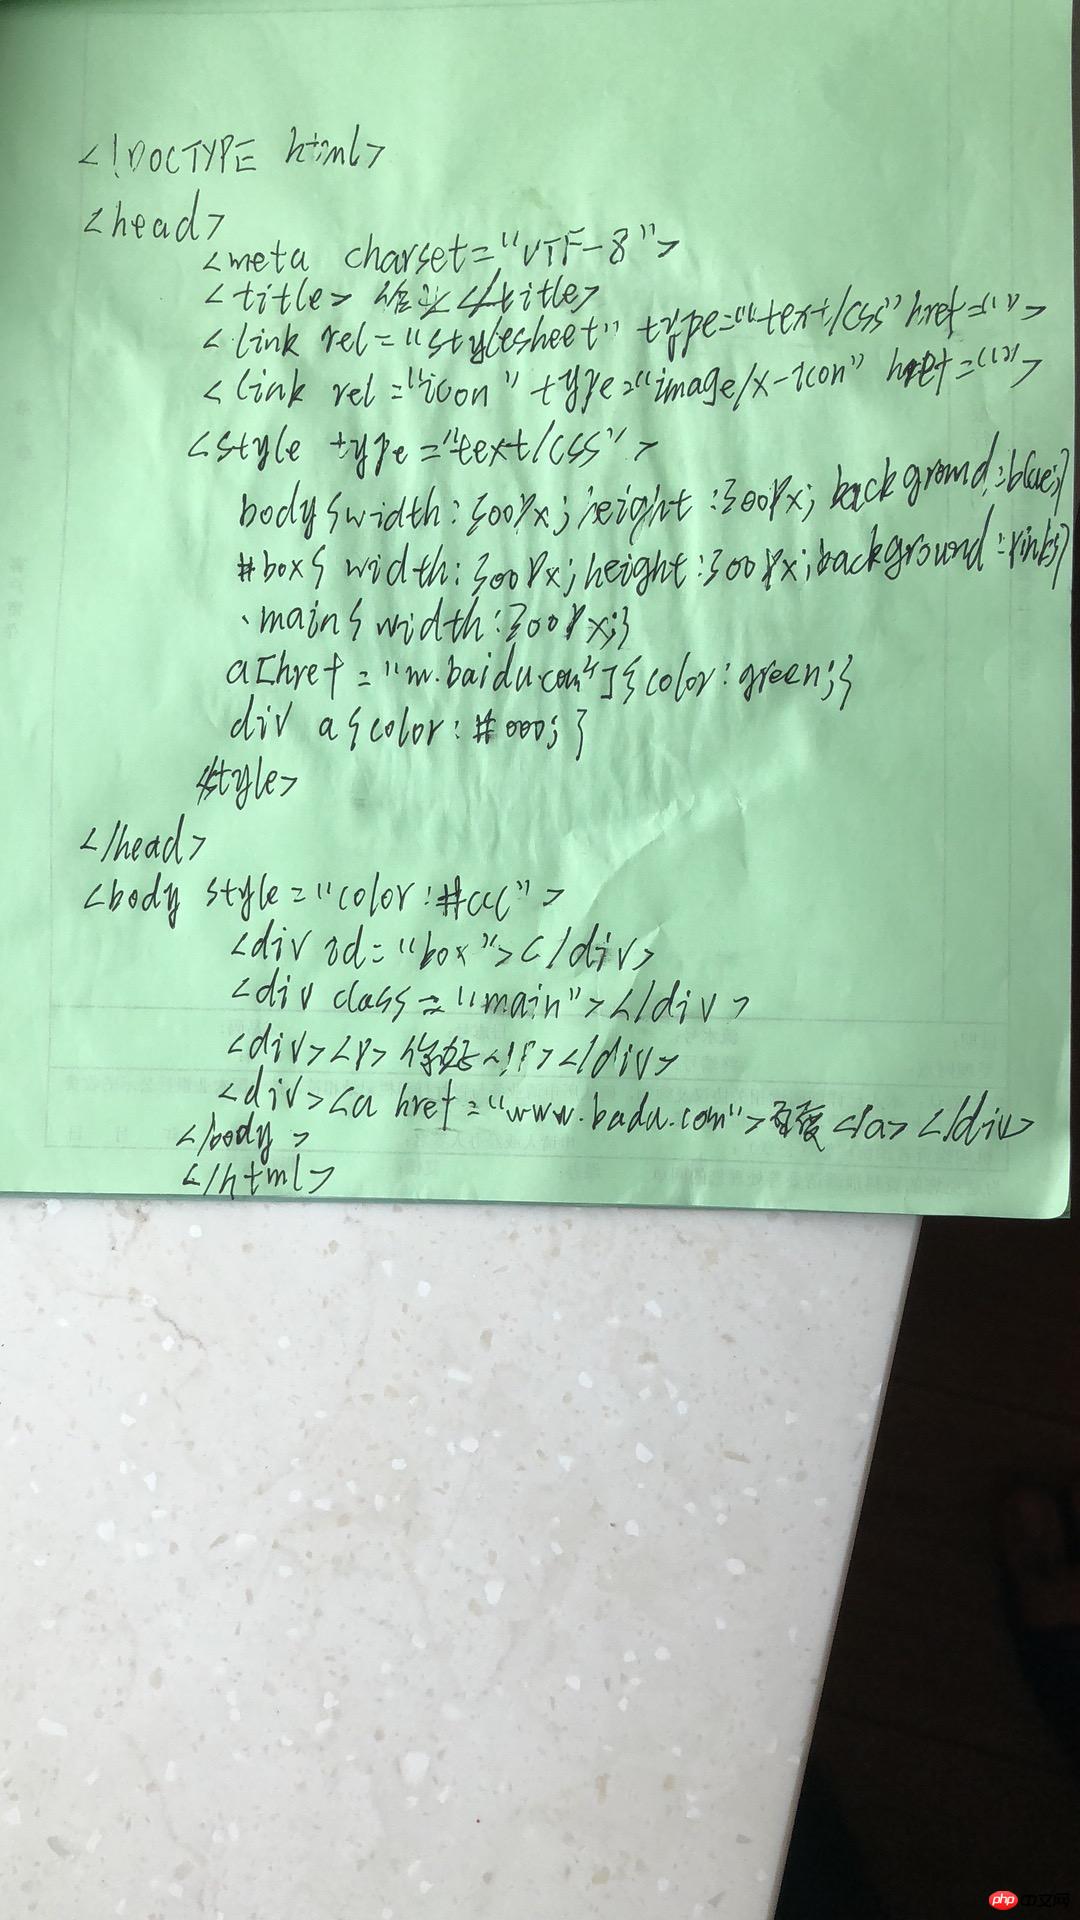 <!DOCTYPE html>
<head>
<meta charset="UTF-8">
<title> </title>
<link rel="stylesheet" type="text/css" href="">
<link rel="icon" type="image/x-icon" href="">
<style type="text/css">
body{width:300px;height:300px;background:blue;}
#box{width:300px;height:300px;background:pink;}
.main{width:300px;}
a[href="m.baidu.com"]{color:green;}
div a{color:#000;}
</style>
</head>
<body style="color:#ccc">
<div id="box"></div>
<div class="main"></div>
<div><p>你好</p></div>
<div><a href="www.badu.com">百度</a></div>
</body>
</html>
php中文网